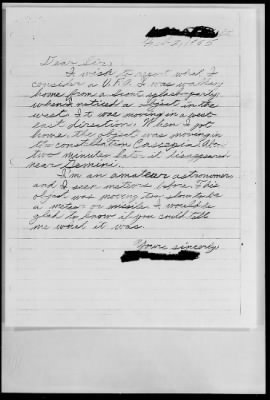 Dear Sir,
I wish to report what I
consider a U.F.O. I was walking
home from a front splash party
when I noticed a object in the
west. It was moving on a
east direction. When I got
home, the object was moving in
to constellation Cassiopeia. About
two minutes later it disapeared
near Gemini.
I'm an amateur astronomer
and I seen meteors before. This
object was moving too slow to be
a meteor or missile. I would be
glad to know if you could tell
me what it was.
Yours sincerely